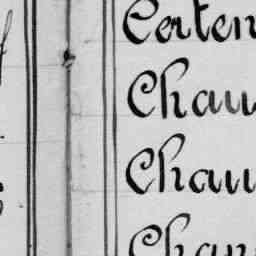 Certen
Chau
Chau
Chau